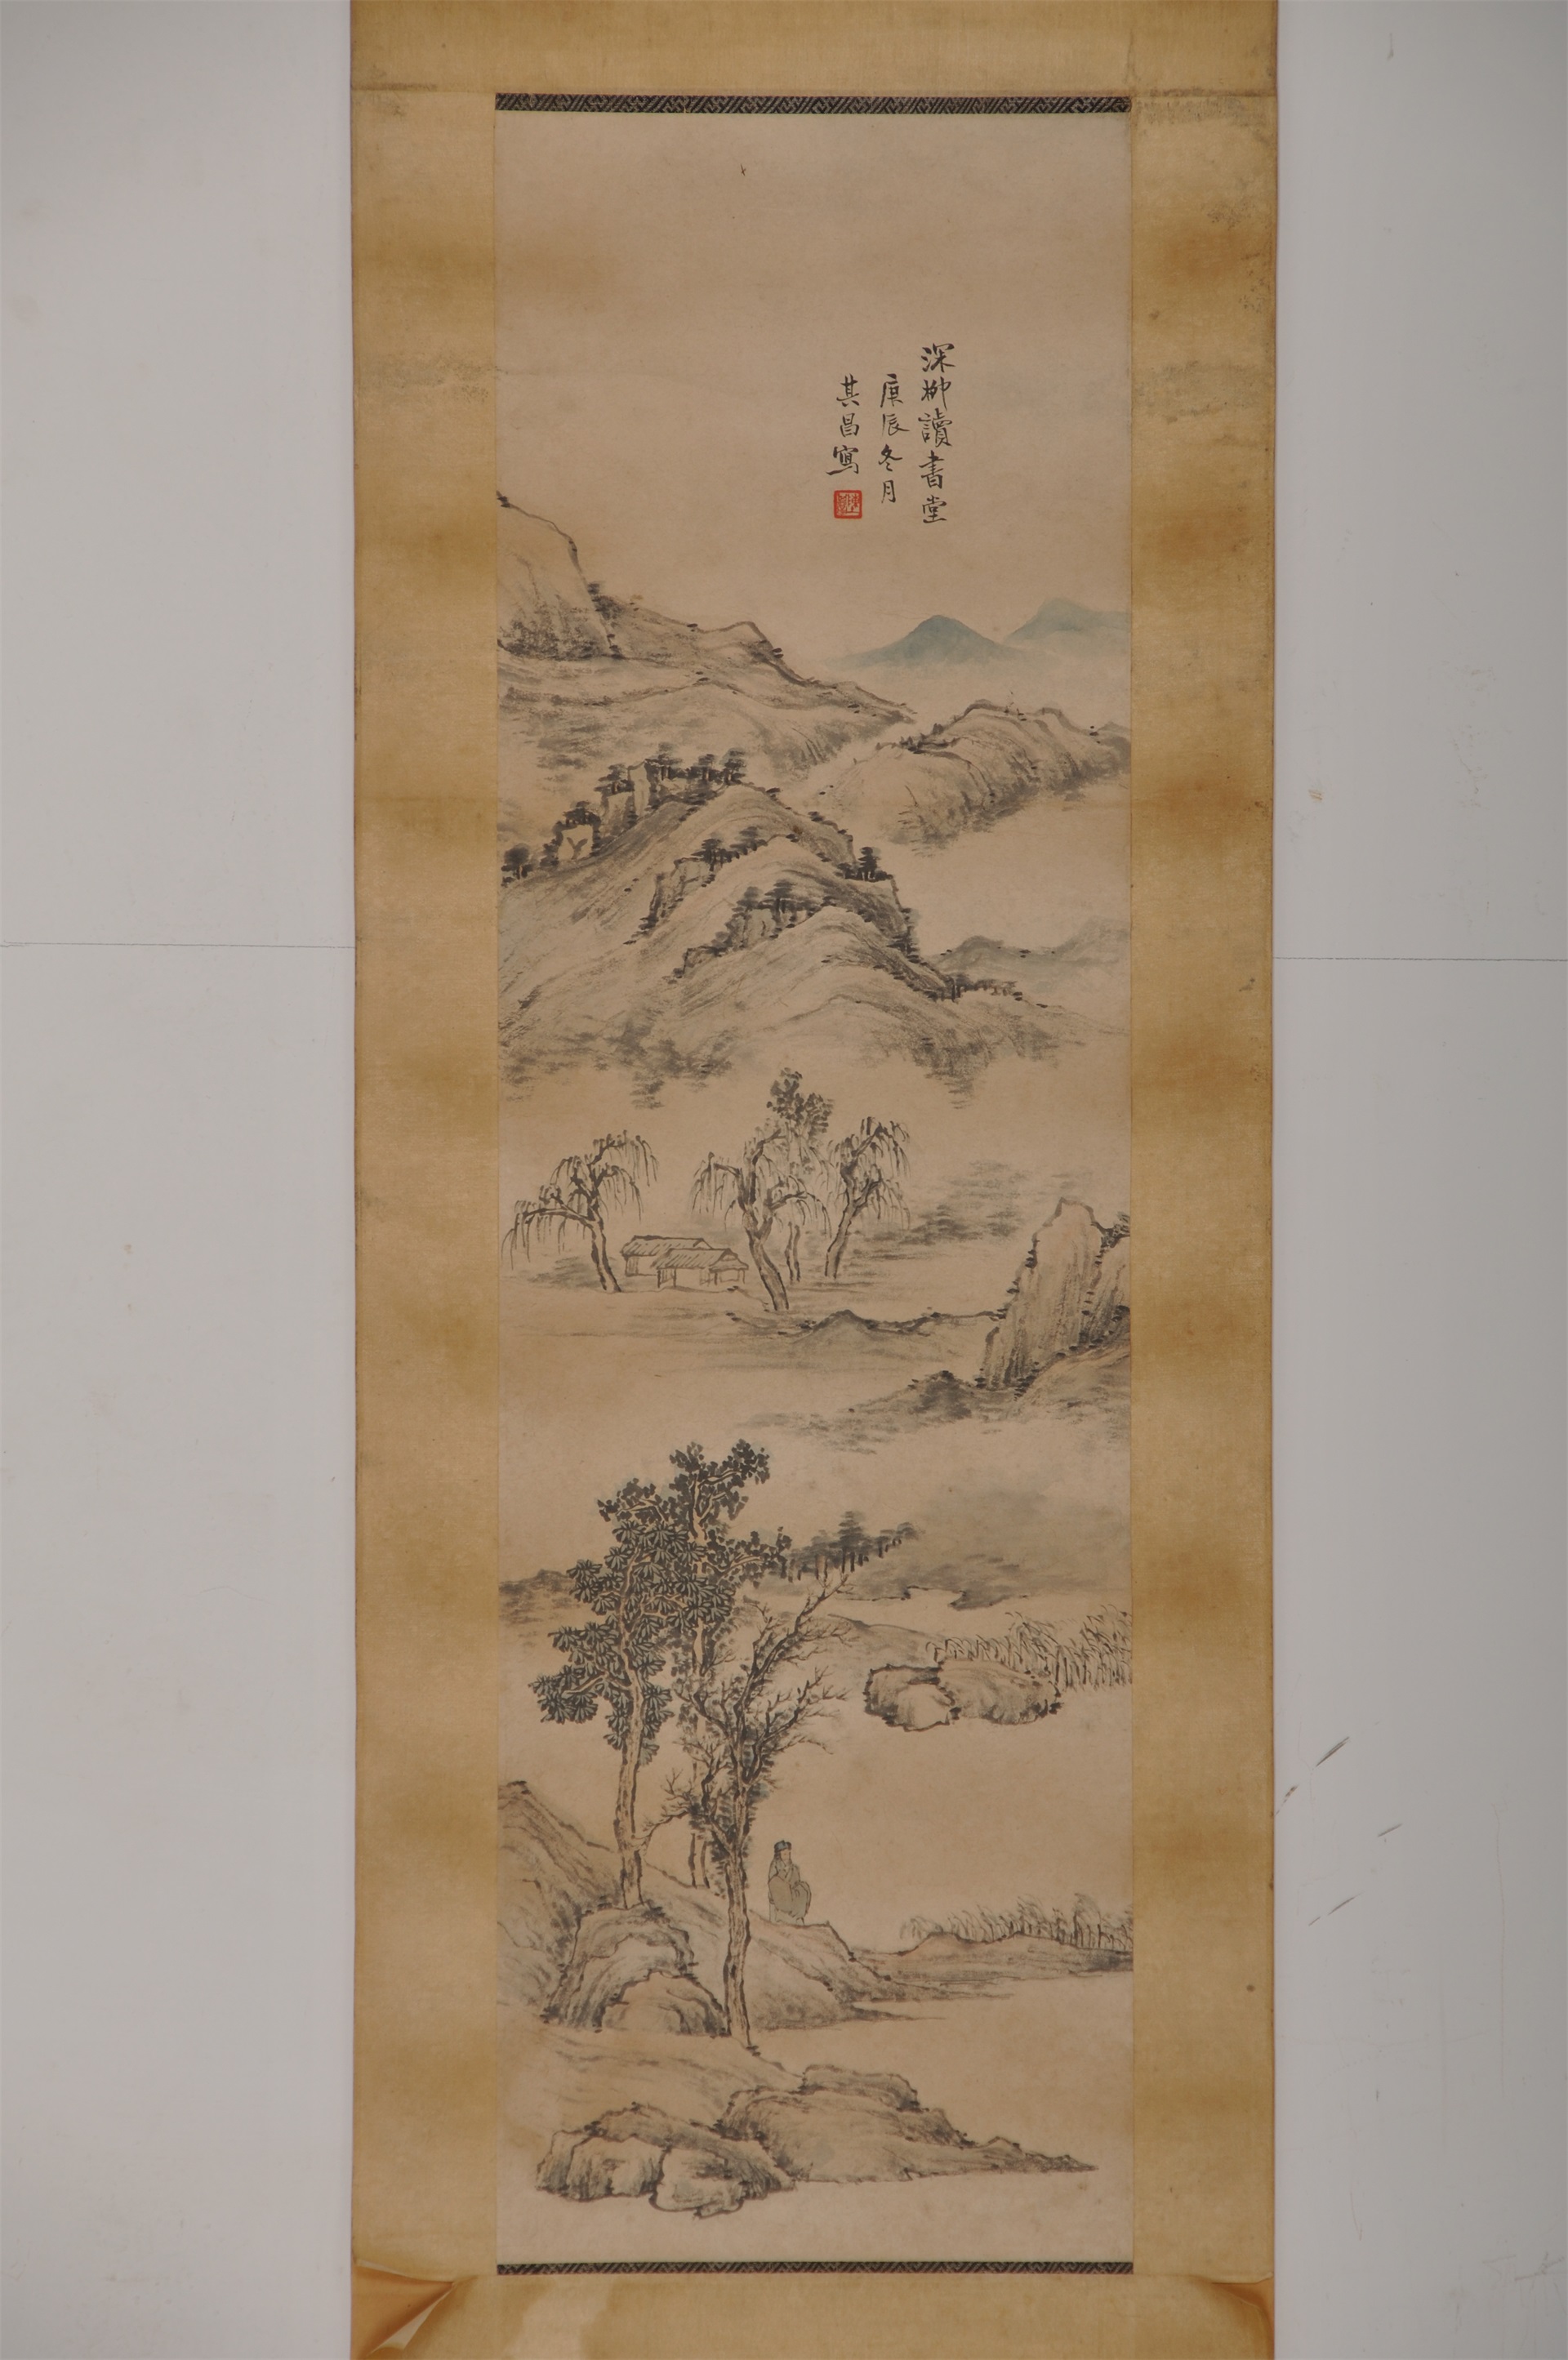 深柳讀書堂
庚辰冬月
其昌寫